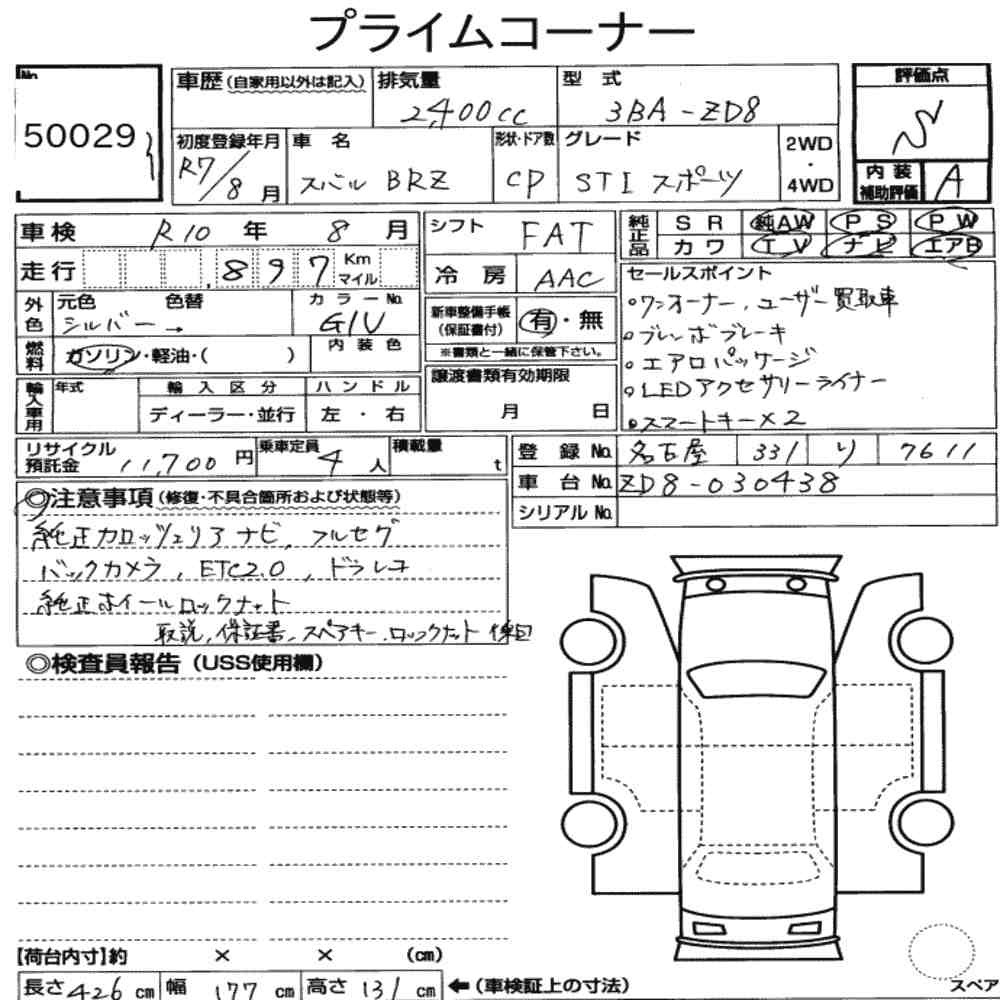 プライムコーナー
No.
50029
車歴(自家用以外は記入)
排気量
2,400cc
型 式
3BA-ZD8
評価点
S
初度登録年月
R7/8月
車 名
スバル BRZ
形状・ドア数
CP
グレード
STI スポーツ
2WD
・
4WD
内装
補助評価
A
車検 R10 年 8 月
走行 897 Km
マイル
シフト
FAT
冷 房
AAC
純正品
SR 純AW PS PW
カワ TV ナビ エアB
外色
元色 色替
シルバー→
カラーNo.
G1U
燃料
ガソリン・軽油・( )
内装色
新車整備手帳
(保証書付)
有・無
※書類と一緒に保管下さい。
セールスポイント
・ワンオーナー、ユーザー買取車
・ブレンボブレーキ
・エアロパッケージ
・LEDアクセサリーライナー
・スマートキー×2
輸入車用
年式
輸入区分
ディーラー・並行
ハンドル
左・右
譲渡書類有効期限
月 日
リサイクル
預託金 11,700 円
乗車定員
4 人
積載量
t
登 録 No. 名古屋 331 り 7611
車 台 No. ZD8-030438
シリアルNo.
◎注意事項(修復・不具合箇所および状態等)
純正カロッツェリアナビ、フルセグ
バックカメラ、ETC2.0、ドラレコ
純正ホイールロックナット
取説、保証書、スペアキー、ロックナット
◎検査員報告(USS使用欄)
【荷台内寸】約 × × (cm)
長さ 426 cm 幅 177 cm 高さ 131 cm ←(車検証上の寸法)
スペア